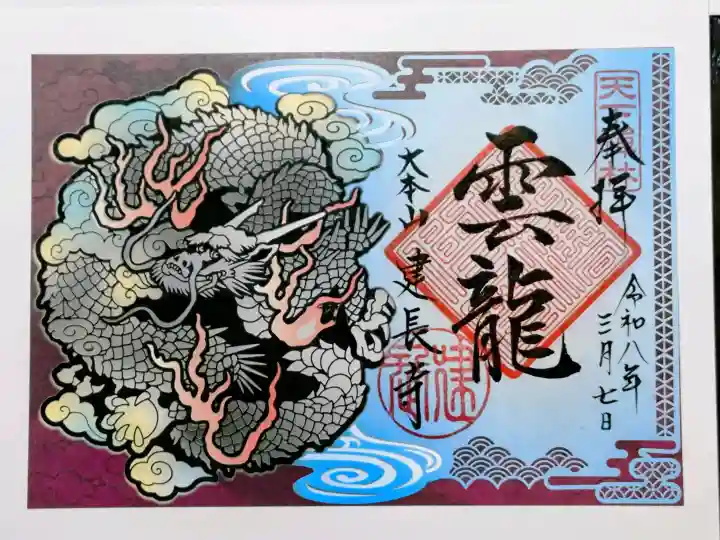 奉拝
令和八年
三月七日
雲龍
大本山建長寺